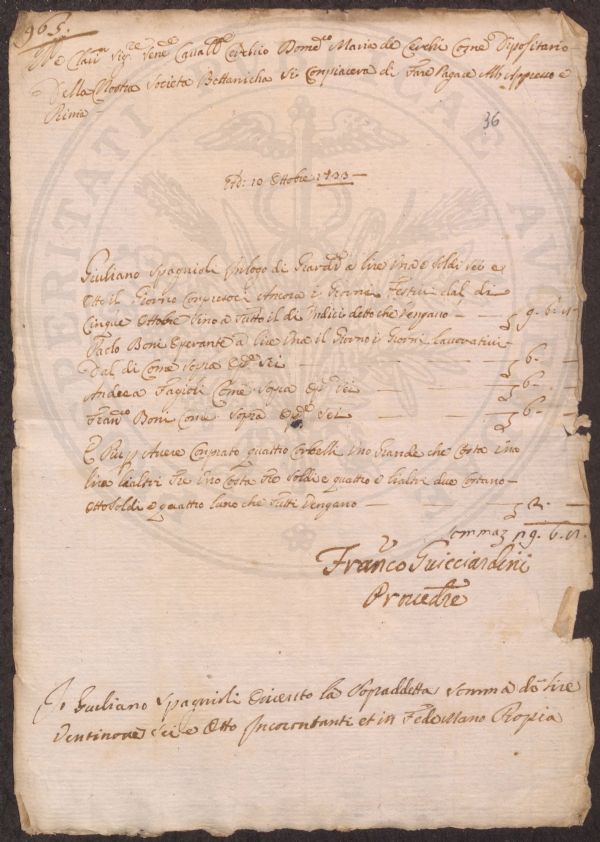 965.
Cerchio Dom:co Maria de Cerchi Come Dipositario
Della Nostra Società Bottanicha Si Conpiacera di Fare Pagare
36
Add: 10 Ottobre 1733
Giuliano Spagnioli in logo di a lire Una e Soldi Sei e
Otto il Giorno Conpresoci Ancora i Giorni Festivi dal di
Cinque Ottobre Sino a Tutto il di Undici detto che Vengano
9. 6.
Paolo Boni Operante a lire Una il Giorno i Giorni lavorativi
Dal di Come Sopra Sei
6.
Andrea Fagioli Come Sopra Sei
6.
Fran:co Boni Come Sopra Sei
6.
E Piu Avere Conprato quattro Corbelli Uno Grande che Costa Una
lira Tre Uno Costa Soldi e quattro e li altri due Costano
Otto Soldi e quattro luno che Tutti Vengano
2.
Somma 29. 6.
Fran:co Guicciardini
Proved:re
Io Giuliano Spagnioli la Sopraddetta Somma di lire
Ventinove Sei e Otto In contanti et in Fede Mano Propia
PROSPERITATI PUBLICAE